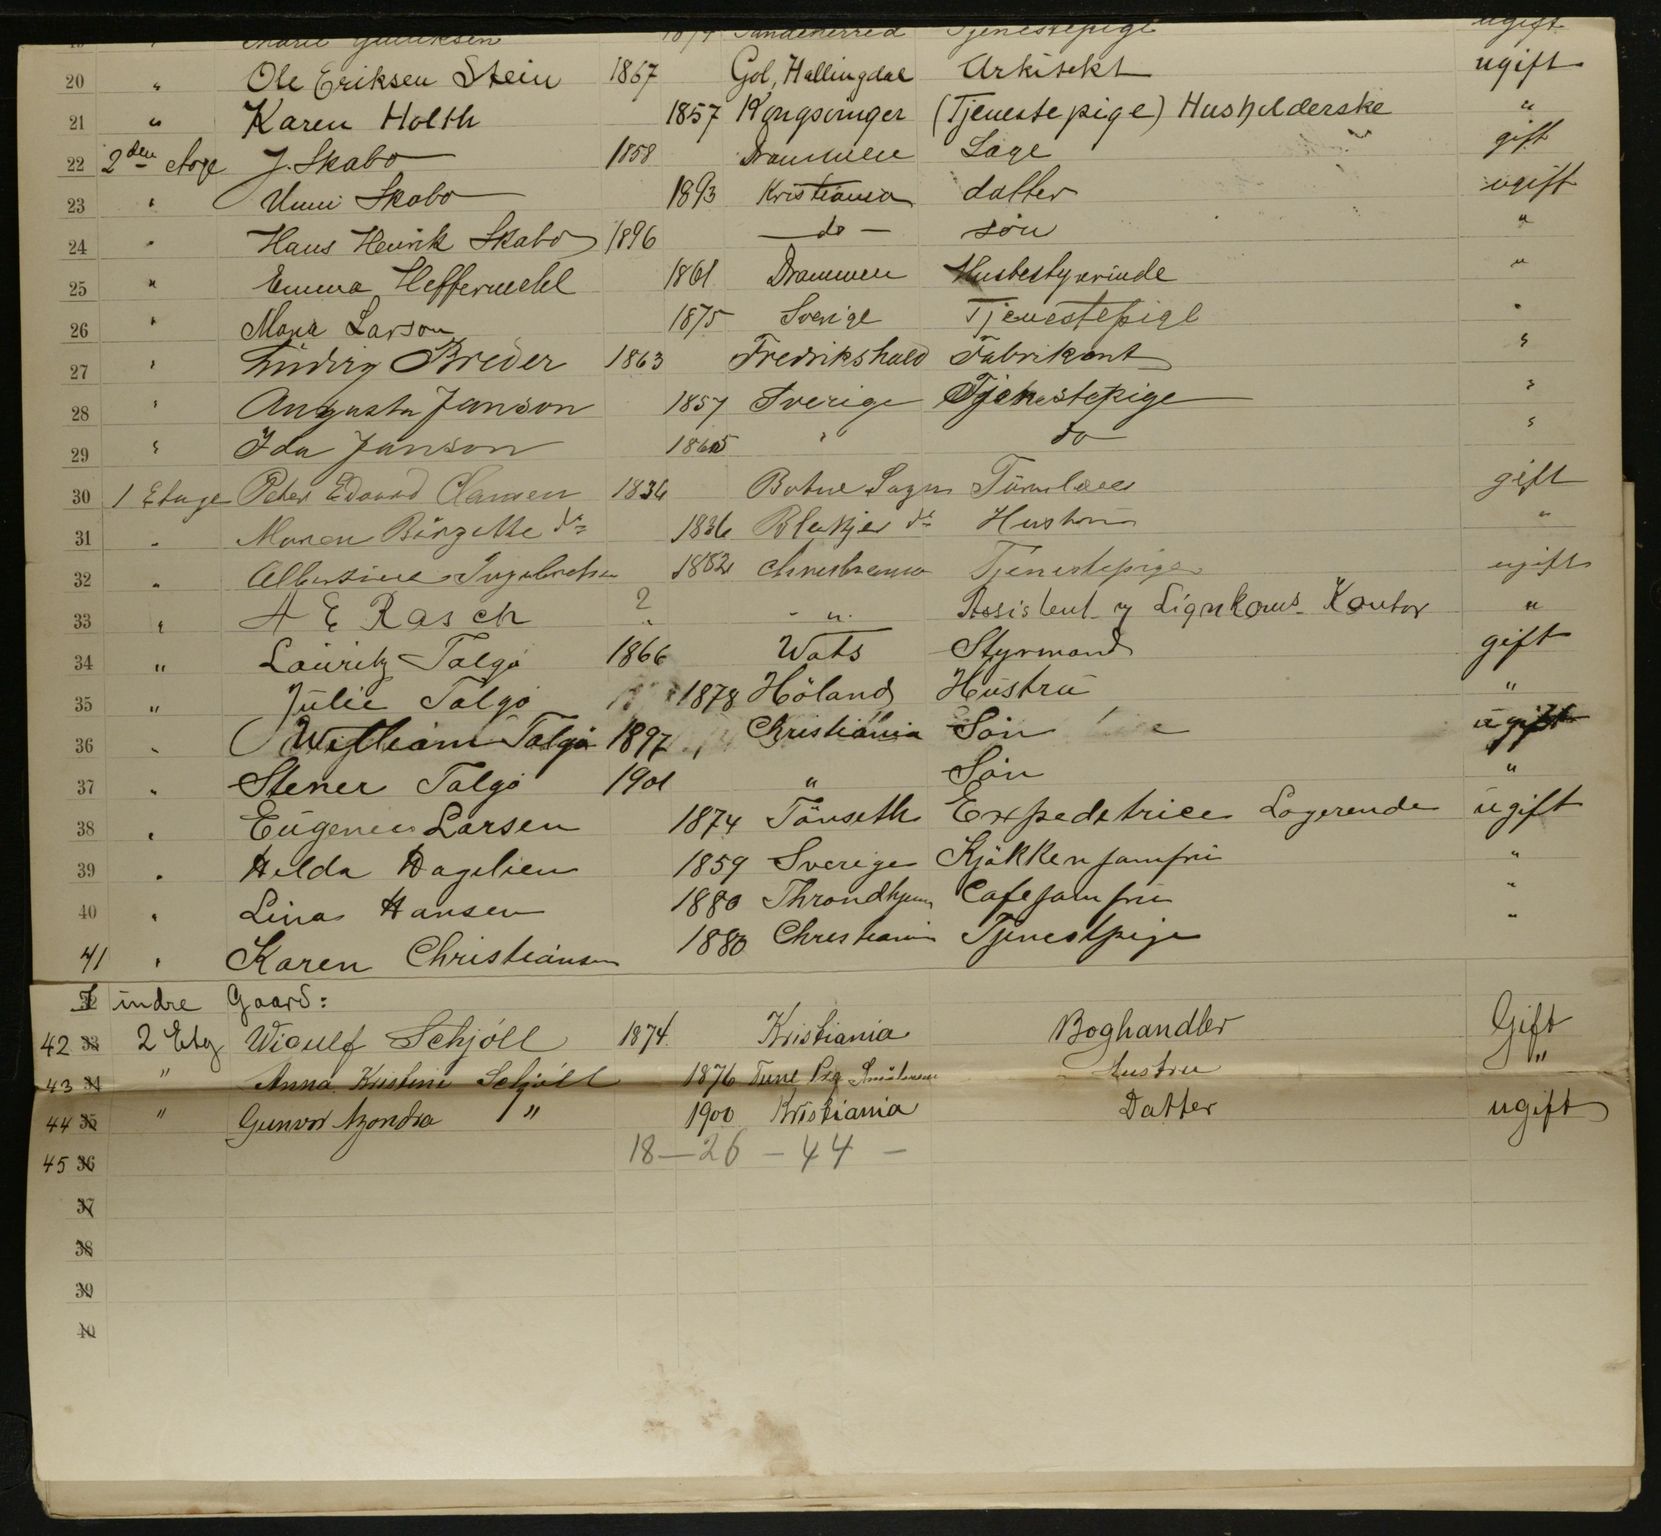 Marie Gulliksen 1874 Sandeherred Tjenestepige ugift
20 " Ole Eriksen Stein 1867 Gol, Hallingdal Arkitekt ugift
21 " Karen Holth 1857 Kongsvinger (Tjenestepige) Husholderske "
22 2den Etage J. Skabo 1858 Drammen Læge gift
23 " Unni Skabo 1893 Kristiania datter ugift
24 " Hans Henrik Skabo 1896 — do — søn "
25 " Emma Heffermehl 1861 Drammen Husbestyrerinde "
26 " Maria Larson 1875 Sverige Tjenestepige "
27 " Ludvig Breder 1863 Fredrikshald Fabrikant "
28 " Augusta Janson 1857 Sverige Tjenestepige "
29 " Ida Janson 1865 " do "
30 1 Etage Peter Edvard Clausen 1836 Botne Sogn gift
31 " Maren Birgitte do 1836 do Hustru "
32 " Albertine Ingebretsen 1882 Christiania Tjenestepige ugift
33 " A E Rasch ? " Assistent v Lignkoms. Kontor "
34 " Lauritz Talgø 1866 Wats Styrmand gift
35 " Julie Talgø 1878 Høland Hustru "
36 " William Talgø 1897 Christiania Søn ugift
37 " Stener Talgø 1901 " Søn "
38 " Eugenie Larsen 1874 Tönseth Expedetrice Logerende ugift
39 " Hilda Dagelien 1859 Sverige Kjøkkenjomfru "
40 " Lina Hansen 1880 Throndhjem Cafejomfru "
41 " Karen Christiansen 1880 Christiania Tjenestpige "
32 I indre Gaard:
42 33 2 Etg Wiculf Schjöll 1874. Kristiania Boghandler Gift
43 34 " Anna Kristine Schjöll 1876 Tune Prg Smålenene Hustru "
44 35 " Gunvor " 1900 Kristiania Datter ugift
45 36 18 — 26 — 44 —
37
38
39
40